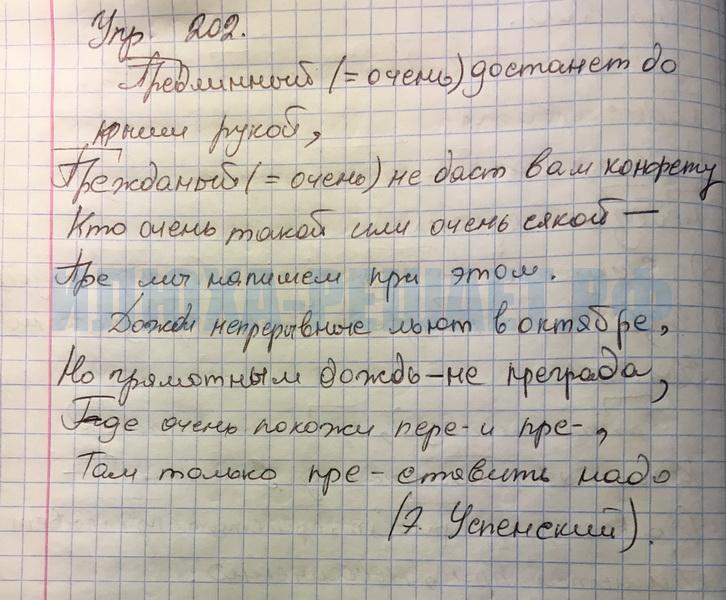 Упр. 202.
Предлинный (= очень) достанет до
крыши рукой,
Прежданый (= очень) не даст вам конфету
Кто очень такой или очень сякой —
Пре мы напишем при этом.
Дожди непрерывные льют в октябре,
Но грамотным дождь – не преграда,
Где очень похожи пере- и пре-,
Там только пре- ставить надо
(Э. Успенский).
ИЛЮХА-РЕШАЕТ.РФ